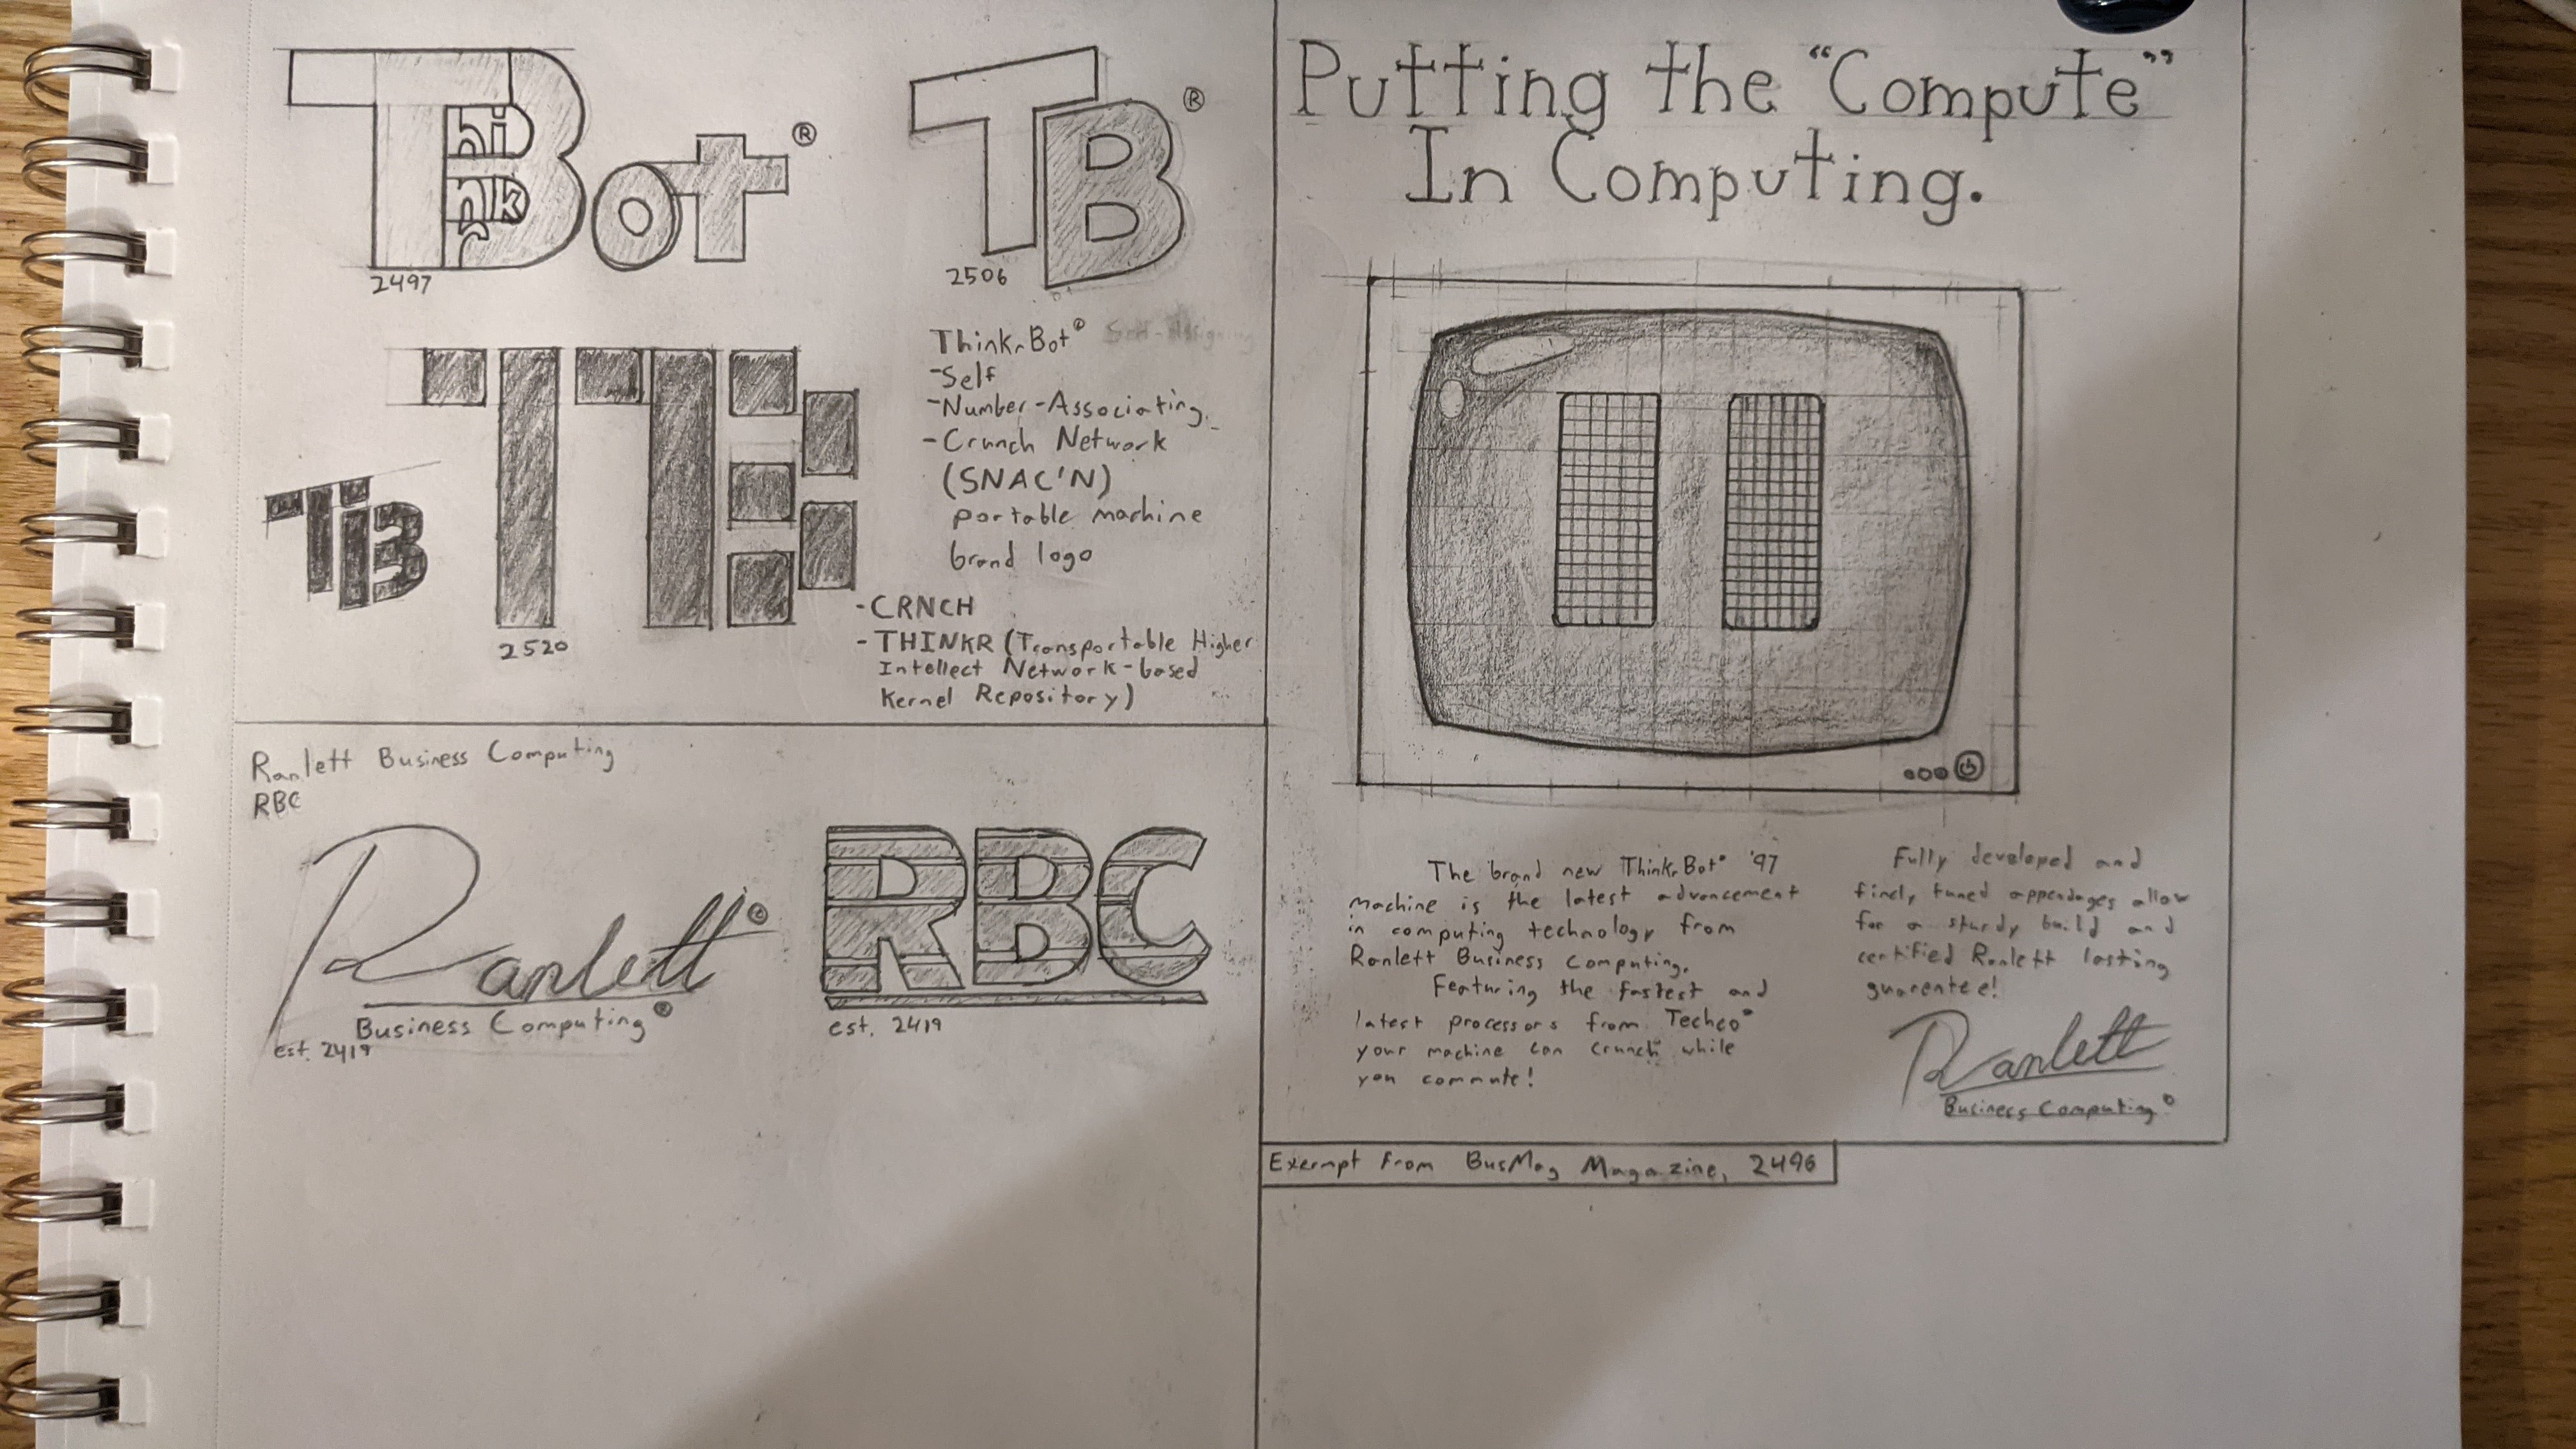 TBot®
hi
nk
r
2497
TB®
2506
TB
TB
2520
ThinkrBot® Self-Assigning
-Self
-Number-Associating
-Crunch Network
(SNAC'N)
portable machine
brand logo
-CRNCH
-THINKR (Transportable Higher
Intellect Network-based
Kernel Repository)
Ranlett Business Computing
RBC
Ranlett©
Business Computing®
est. 2419
RBC
est. 2419
Putting the “Compute”
In Computing.
The brand new ThinkrBot® '97
machine is the latest advancement
in computing technology from
Ranlett Business Computing.
Featuring the fastest and
latest processors from Techco®
your machine can crunch while
you commute!
Fully developed and
finely tuned appendages allow
for a sturdy build and
certified Ranlett lasting
guarentee!
Ranlett
Business Computing®
Exermpt from BusMag Magazine, 2496